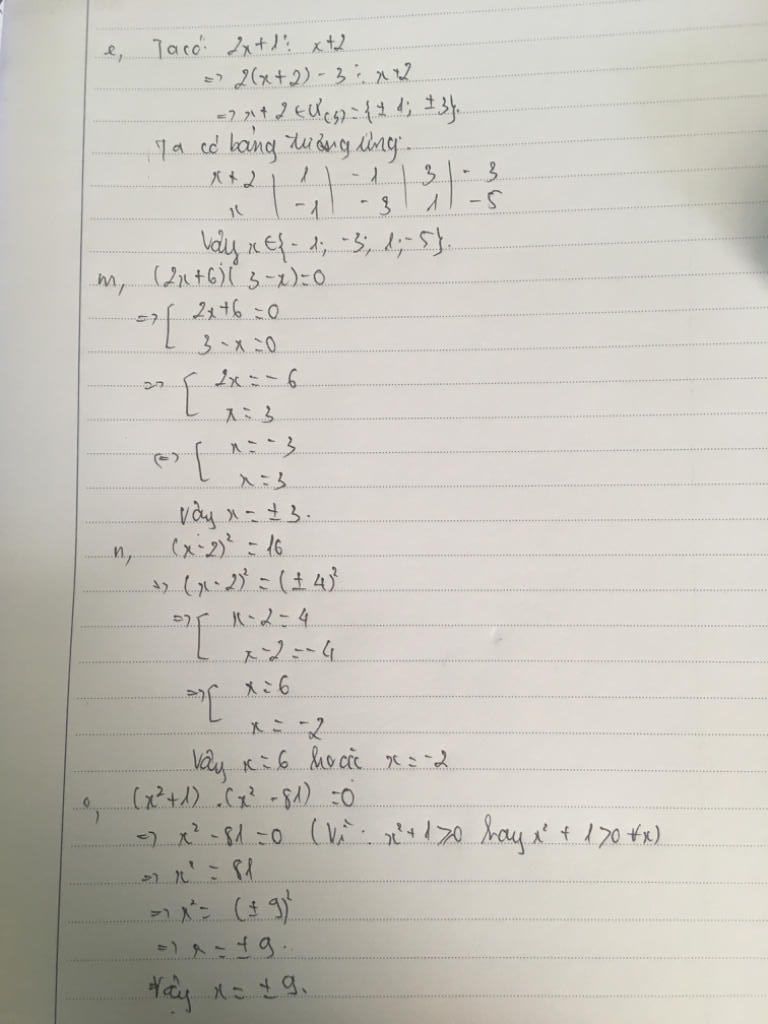 e, Ta có: 2x+1 ⋮ x+2
=> 2(x+2) - 3 ⋮ x+2
=> x+2 ∈ Ư(3) = {± 1; ±3}.
Ta có bảng tương ứng:
x+2 | 1 | -1 | 3 | -3
x | -1 | -3 | 1 | -5
Vậy x ∈ {-1; -3; 1; -5}.
m, (2x+6)(3-x)=0
=> [ 2x+6 =0
3-x=0
=> [ 2x = -6
x = 3
<=> [ x = -3
x = 3
Vậy x = ± 3.
n, (x-2)² = 16
=> (x-2)² = (± 4)²
=> [ x-2 = 4
x-2 = -4
=> [ x = 6
x = -2
Vậy x = 6 hoặc x = -2
o, (x²+1) . (x² - 81) = 0
=> x² - 81 = 0 (Vì x²+1 ≥ 0 hay x² + 1 > 0 ∀x)
=> x² = 81
=> x² = (± 9)²
=> x = ± 9.
Vậy x = ± 9.